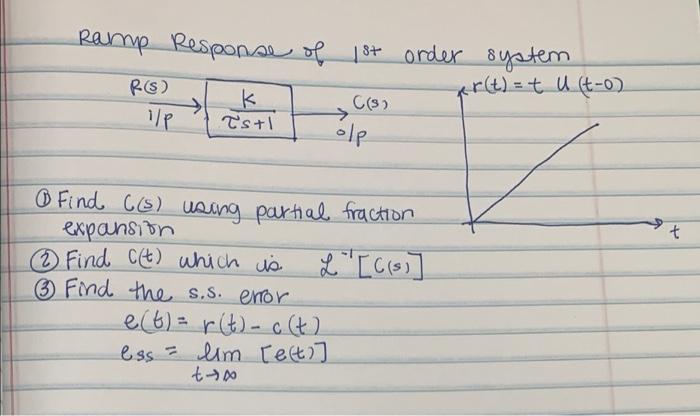 Ramp Response of 1st order system
R(s)
i/p
K
τs+1
C(s)
o/p
r(t) = t u(t-0)
t
① Find C(s) using partial fraction
expansion
② Find C(t) which is ℒ⁻¹[C(s)]
③ Find the s.s. error
e(t) = r(t) - c(t)
ess = lim [e(t)]
t→∞